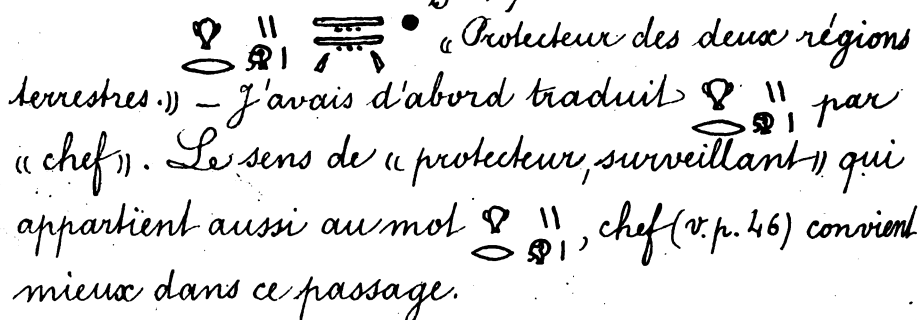 « Protecteur des deux régions
terrestres.» — J'avais d'abord traduit par
« chef». Le sens de « protecteur, surveillant» qui
appartient aussi au mot , chef (v. p. 46) convient
mieux dans ce passage.